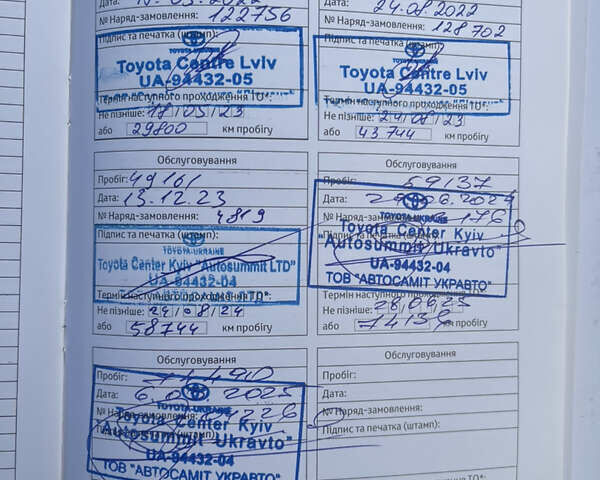 Дата:
№ Наряд-замовлення: 122756
Підпис та печатка (штамп):
TOYOTA-UKRAINE
Toyota Centre Lviv
UA-94432-05
Термін наступного проходження ТО*:
Не пізніше: 18 / 03 / 23
або 29800 км пробігу
Дата: 24.08.2022
№ Наряд-замовлення: 128702
Підпис та печатка (штамп):
TOYOTA-UKRAINE
Toyota Centre Lviv
UA-94432-05
Термін наступного проходження ТО*:
Не пізніше: 24 / 08 / 23
або 43744 км пробігу
Обслуговування
Пробіг: 49161
Дата: 13.12.23
№ Наряд-замовлення: 4819
Підпис та печатка (штамп):
TOYOTA-UKRAINE
Toyota Center Kyiv "Autosummit LTD"
UA-94432-04
Термін наступного проходження ТО*:
Не пізніше: 24 / 08 / 24
або 58744 км пробігу
Обслуговування
Пробіг: 59137
Дата: 06.2024
№ Наряд-замовлення: 176
Підпис та печатка (штамп):
TOYOTA-UKRAINE
Toyota Center Kyiv
"Autosummit Ukravto"
UA-94432-04
ТОВ "АВТОСАМІТ УКРАВТО"
Термін наступного проходження ТО*:
Не пізніше: 28 06 25
або км пробігу
Обслуговування
Пробіг:
Дата: 2025
№ Наряд-замовлення: 226
TOYOTA-UKRAINE
Toyota Center Kyiv
"Autosummit Ukravto"
UA-94432-04
ТОВ "АВТОСАМІТ УКРАВТО"
Обслуговування
Пробіг:
Дата:
№ Наряд-замовлення:
Підпис та печатка (штамп):